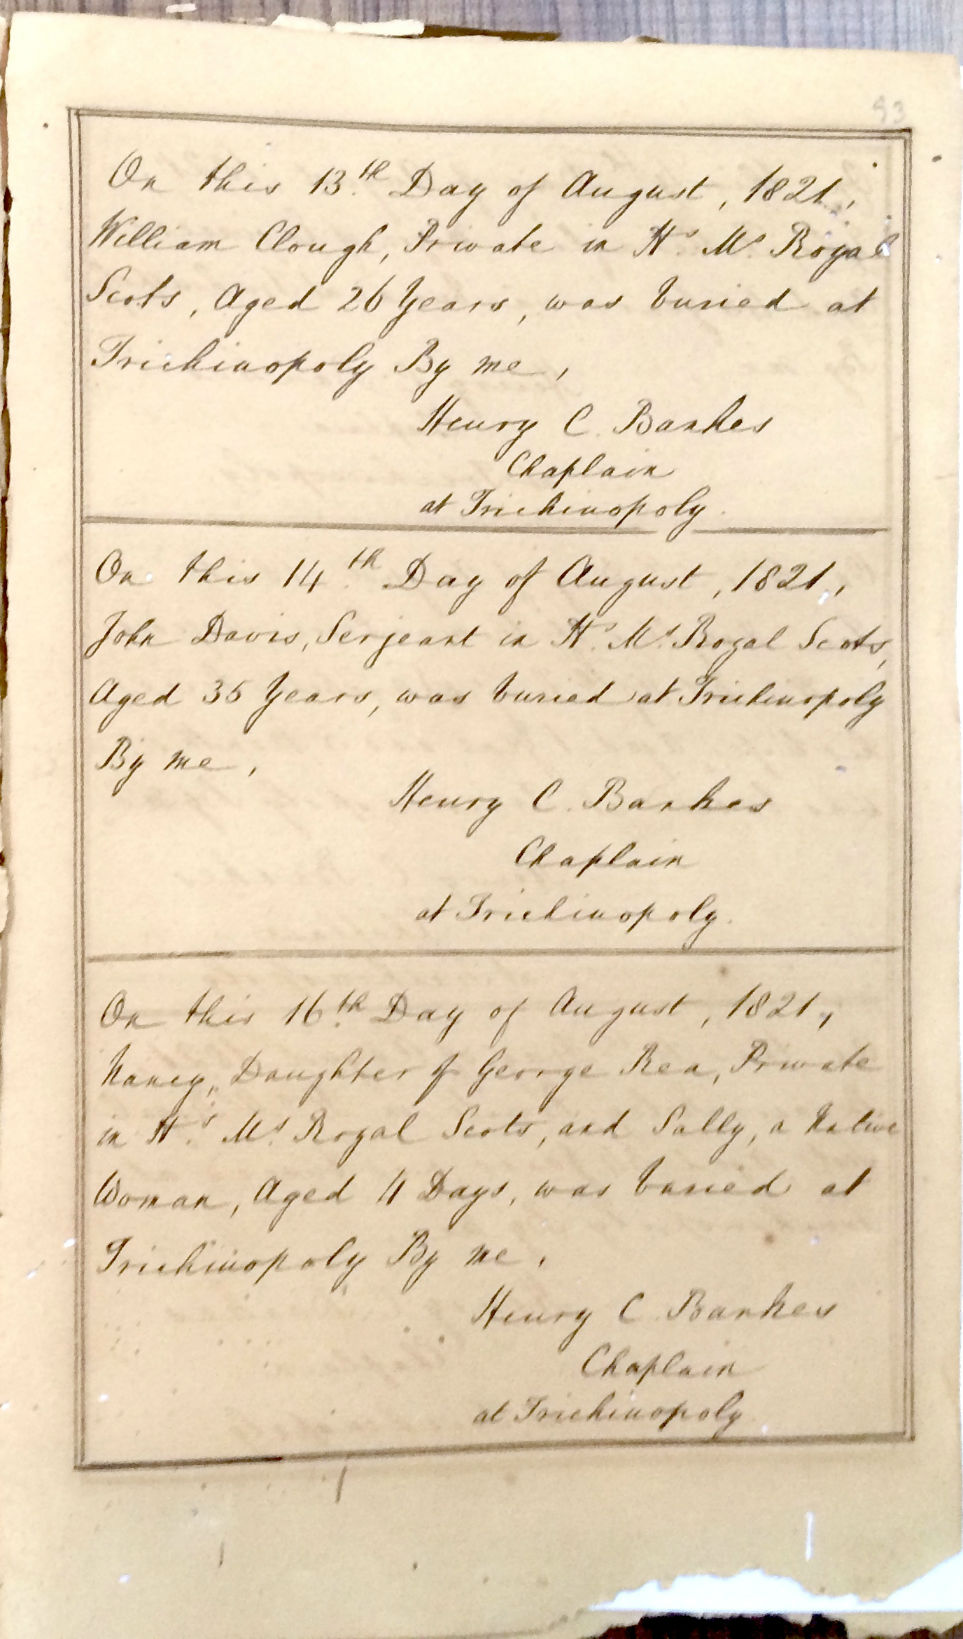 93
On this 13th Day of August, 1821,
William Clough, Private in H's M's Royal
Scots, Aged 26 Years, was buried at
Trichinopoly By me,
Henry C. Bankes
Chaplain
at Trichinopoly.
On this 14th Day of August, 1821,
John Davis, Serjeant in H's M's Royal Scots,
Aged 35 Years, was buried at Trichinopoly
By me,
Henry C. Bankes
Chaplain
at Trichinopoly.
On this 16th Day of August, 1821,
Nancy, Daughter of George Rea, Private
in H's M's Royal Scots, and Sally, a Native
Woman, Aged 4 Days, was buried at
Trichinopoly By me,
Henry C. Bankes
Chaplain
at Trichinopoly